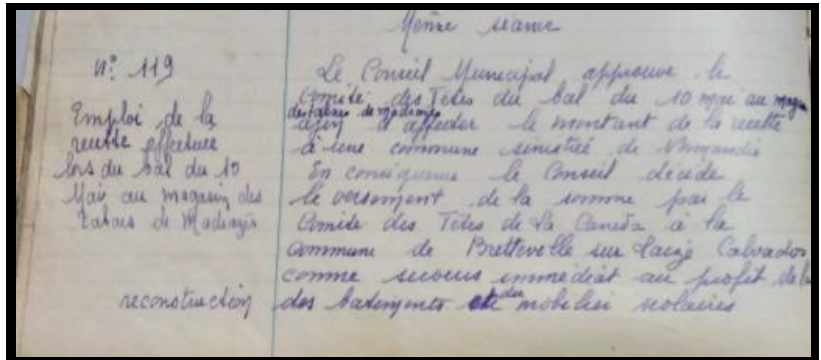 Même séance
N° 119
Emploi de la
recette effectuée
lors du bal du 10
Mai au magasin des
Tabacs de Madrazès
Le Conseil Municipal approuve le
Comité des Fêtes du bal du 10 mai au magasin
des tabacs de Madrazès
afin d'affecter le montant de la recette
à une commune sinistrée de Normandie
En conséquence le Conseil décide
le versement de la somme par le
Comité des Fêtes de La Canéda à la
Commune de Bretteville sur Laize Calvados
comme secours immédiat au profit de la
reconstruction des batiments et du mobilier scolaires